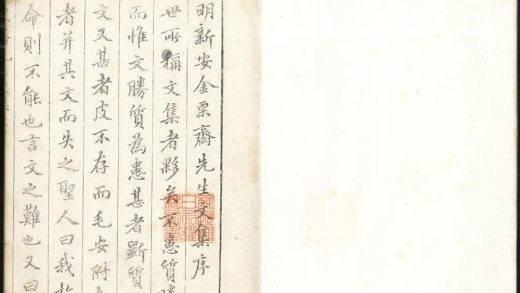 明新安金栗齋先生文集序
世所稱文集者夥矣不患質
而惟文勝質為患甚者斵質
文又甚者皮不存而毛安附
者并其文而失之聖人曰我於
命則不能也言文之難也又曰